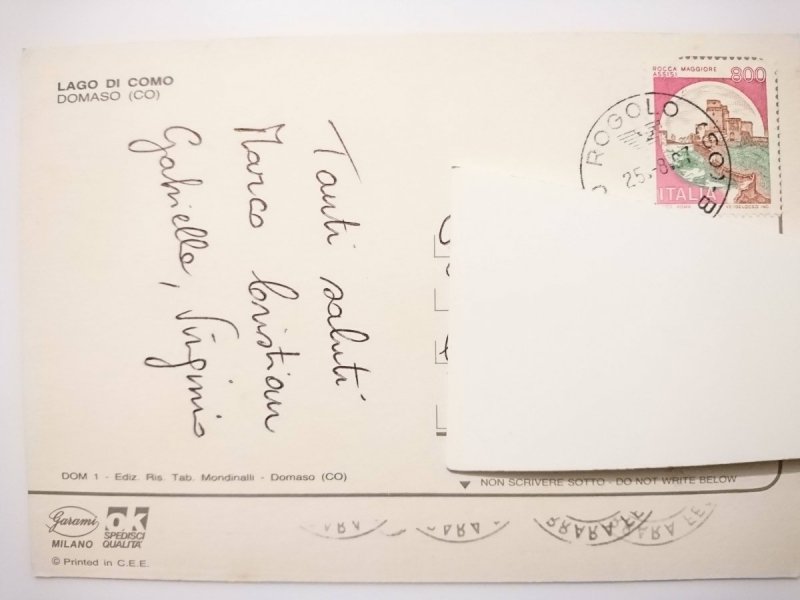 LAGO DI COMO
DOMASO (CO)
Tanti saluti
Marco Cristian
Gabriella, Virginio
ROCCA MAGGIORE
ASSISI
800
ITALIA
ROMA
ROGOLO (SO)
DOM 1 - Ediz. Ris. Tab. Mondinalli - Domaso (CO)
NON SCRIVERE SOTTO - DO NOT WRITE BELOW
Garami
MILANO
ok
SPEDISCI
QUALITA'
© Printed in C.E.E.